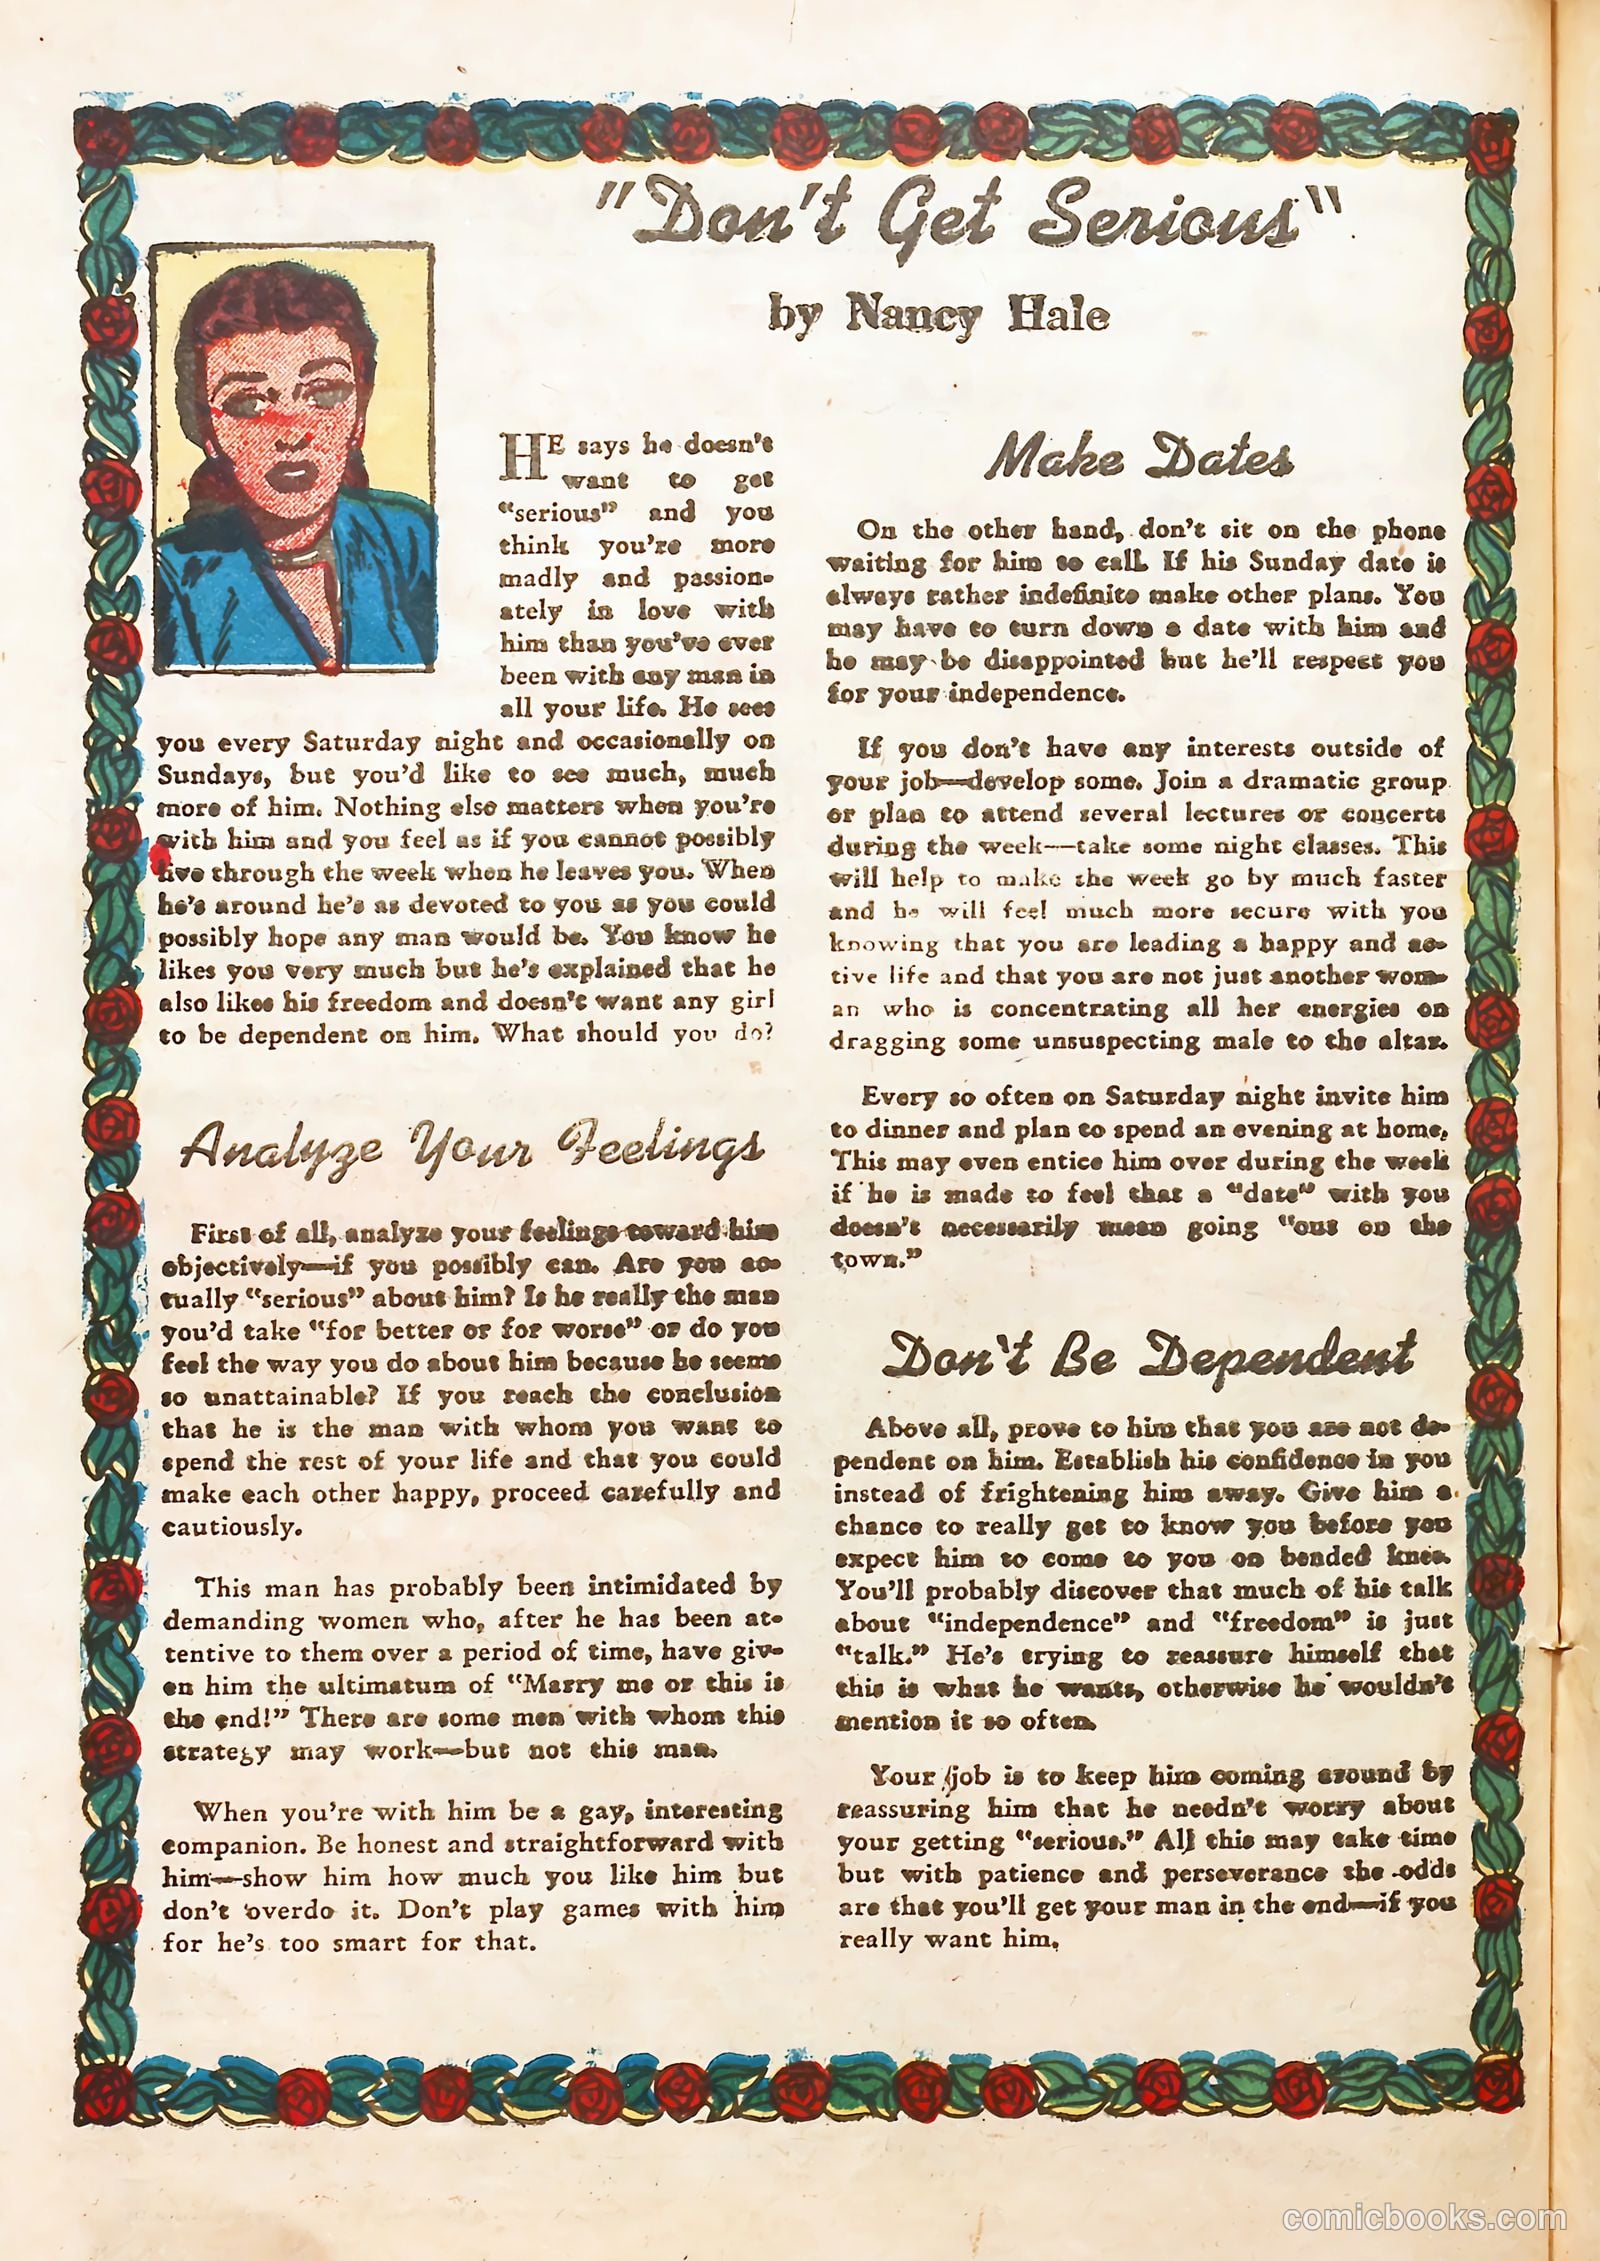 "Don't Get Serious"
by Nancy Hale
HE says he doesn't
want to get
"serious" and you
think you're more
madly and passion-
ately in love with
him than you've ever
been with any man in
all your life. He sees
you every Saturday night and occasionally on
Sundays, but you'd like to see much, much
more of him. Nothing else matters when you're
with him and you feel as if you cannot possibly
live through the week when he leaves you. When
he's around he's as devoted to you as you could
possibly hope any man would be. You know he
likes you very much but he's explained that he
also likes his freedom and doesn't want any girl
to be dependent on him. What should you do?
Analyze Your Feelings
First of all, analyze your feelings toward him
objectively—if you possibly can. Are you ac-
tually "serious" about him? Is he really the man
you'd take "for better or for worse" or do you
feel the way you do about him because he seems
so unattainable? If you reach the conclusion
that he is the man with whom you want to
spend the rest of your life and that you could
make each other happy, proceed carefully and
cautiously.
This man has probably been intimidated by
demanding women who, after he has been at-
tentive to them over a period of time, have giv-
en him the ultimatum of "Marry me or this is
the end!" There are some men with whom this
strategy may work—but not this man.
When you're with him be a gay, interesting
companion. Be honest and straightforward with
him—show him how much you like him but
don't overdo it. Don't play games with him
for he's too smart for that.
Make Dates
On the other hand, don't sit on the phone
waiting for him to call. If his Sunday date is
always rather indefinite make other plans. You
may have to turn down a date with him and
he may be disappointed but he'll respect you
for your independence.
If you don't have any interests outside of
your job—develop some. Join a dramatic group
or plan to attend several lectures or concerts
during the week—take some night classes. This
will help to make the week go by much faster
and he will feel much more secure with you
knowing that you are leading a happy and ac-
tive life and that you are not just another wom-
an who is concentrating all her energies on
dragging some unsuspecting male to the altar.
Every so often on Saturday night invite him
to dinner and plan to spend an evening at home.
This may even entice him over during the week
if he is made to feel that a "date" with you
doesn't necessarily mean going "out on the
town."
Don't Be Dependent
Above all, prove to him that you are not de-
pendent on him. Establish his confidence in you
instead of frightening him away. Give him a
chance to really get to know you before you
expect him to come to you on bended knee.
You'll probably discover that much of his talk
about "independence" and "freedom" is just
"talk." He's trying to reassure himself that
this is what he wants, otherwise he wouldn't
mention it so often.
Your job is to keep him coming around by
reassuring him that he needn't worry about
your getting "serious." All this may take time
but with patience and perseverance the odds
are that you'll get your man in the end—if you
really want him.
comicbooks.com